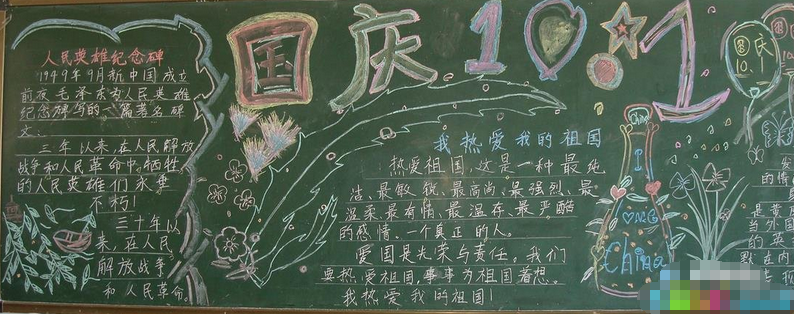 人民英雄纪念碑
1949年9月新中国成立
前夜毛泽东为人民英雄
纪念碑写的一篇著名碑
文。
三年以来,在人民解放
战争和人民革命中牺牲
的人民英雄们永垂
不朽!
三十年以
来,在人民
解放战争
和人民革命。
国庆10.1
我热爱我的祖国
热爱祖国,这是一种最纯
洁、最敏锐、最高尚、最强烈、最
温柔、最有情、最温存、最严酷
的感情、一个真正的人。
爱国是光荣与责任。我们
要热爱祖国,事事为祖国着想。
我热爱我的祖国!
China
I
China
国庆
10.
爱
的情
是黄
当外国
的英
默在内